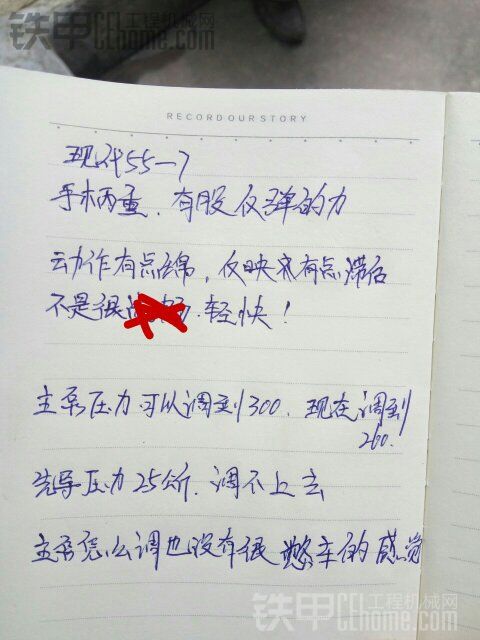 铁甲 工程机械网
CEhome.com
RECORD OUR STORY
现代55-7
手柄重、有股反弹的力
动作有点绵,反映 有点滞后
不是很 轻快!
主泵压力可以调到300、现在调到
260.
先导压力25公斤、调不上去
主泵怎么调也没有很憋车的感觉
铁甲 工程机械网
CEhome.com